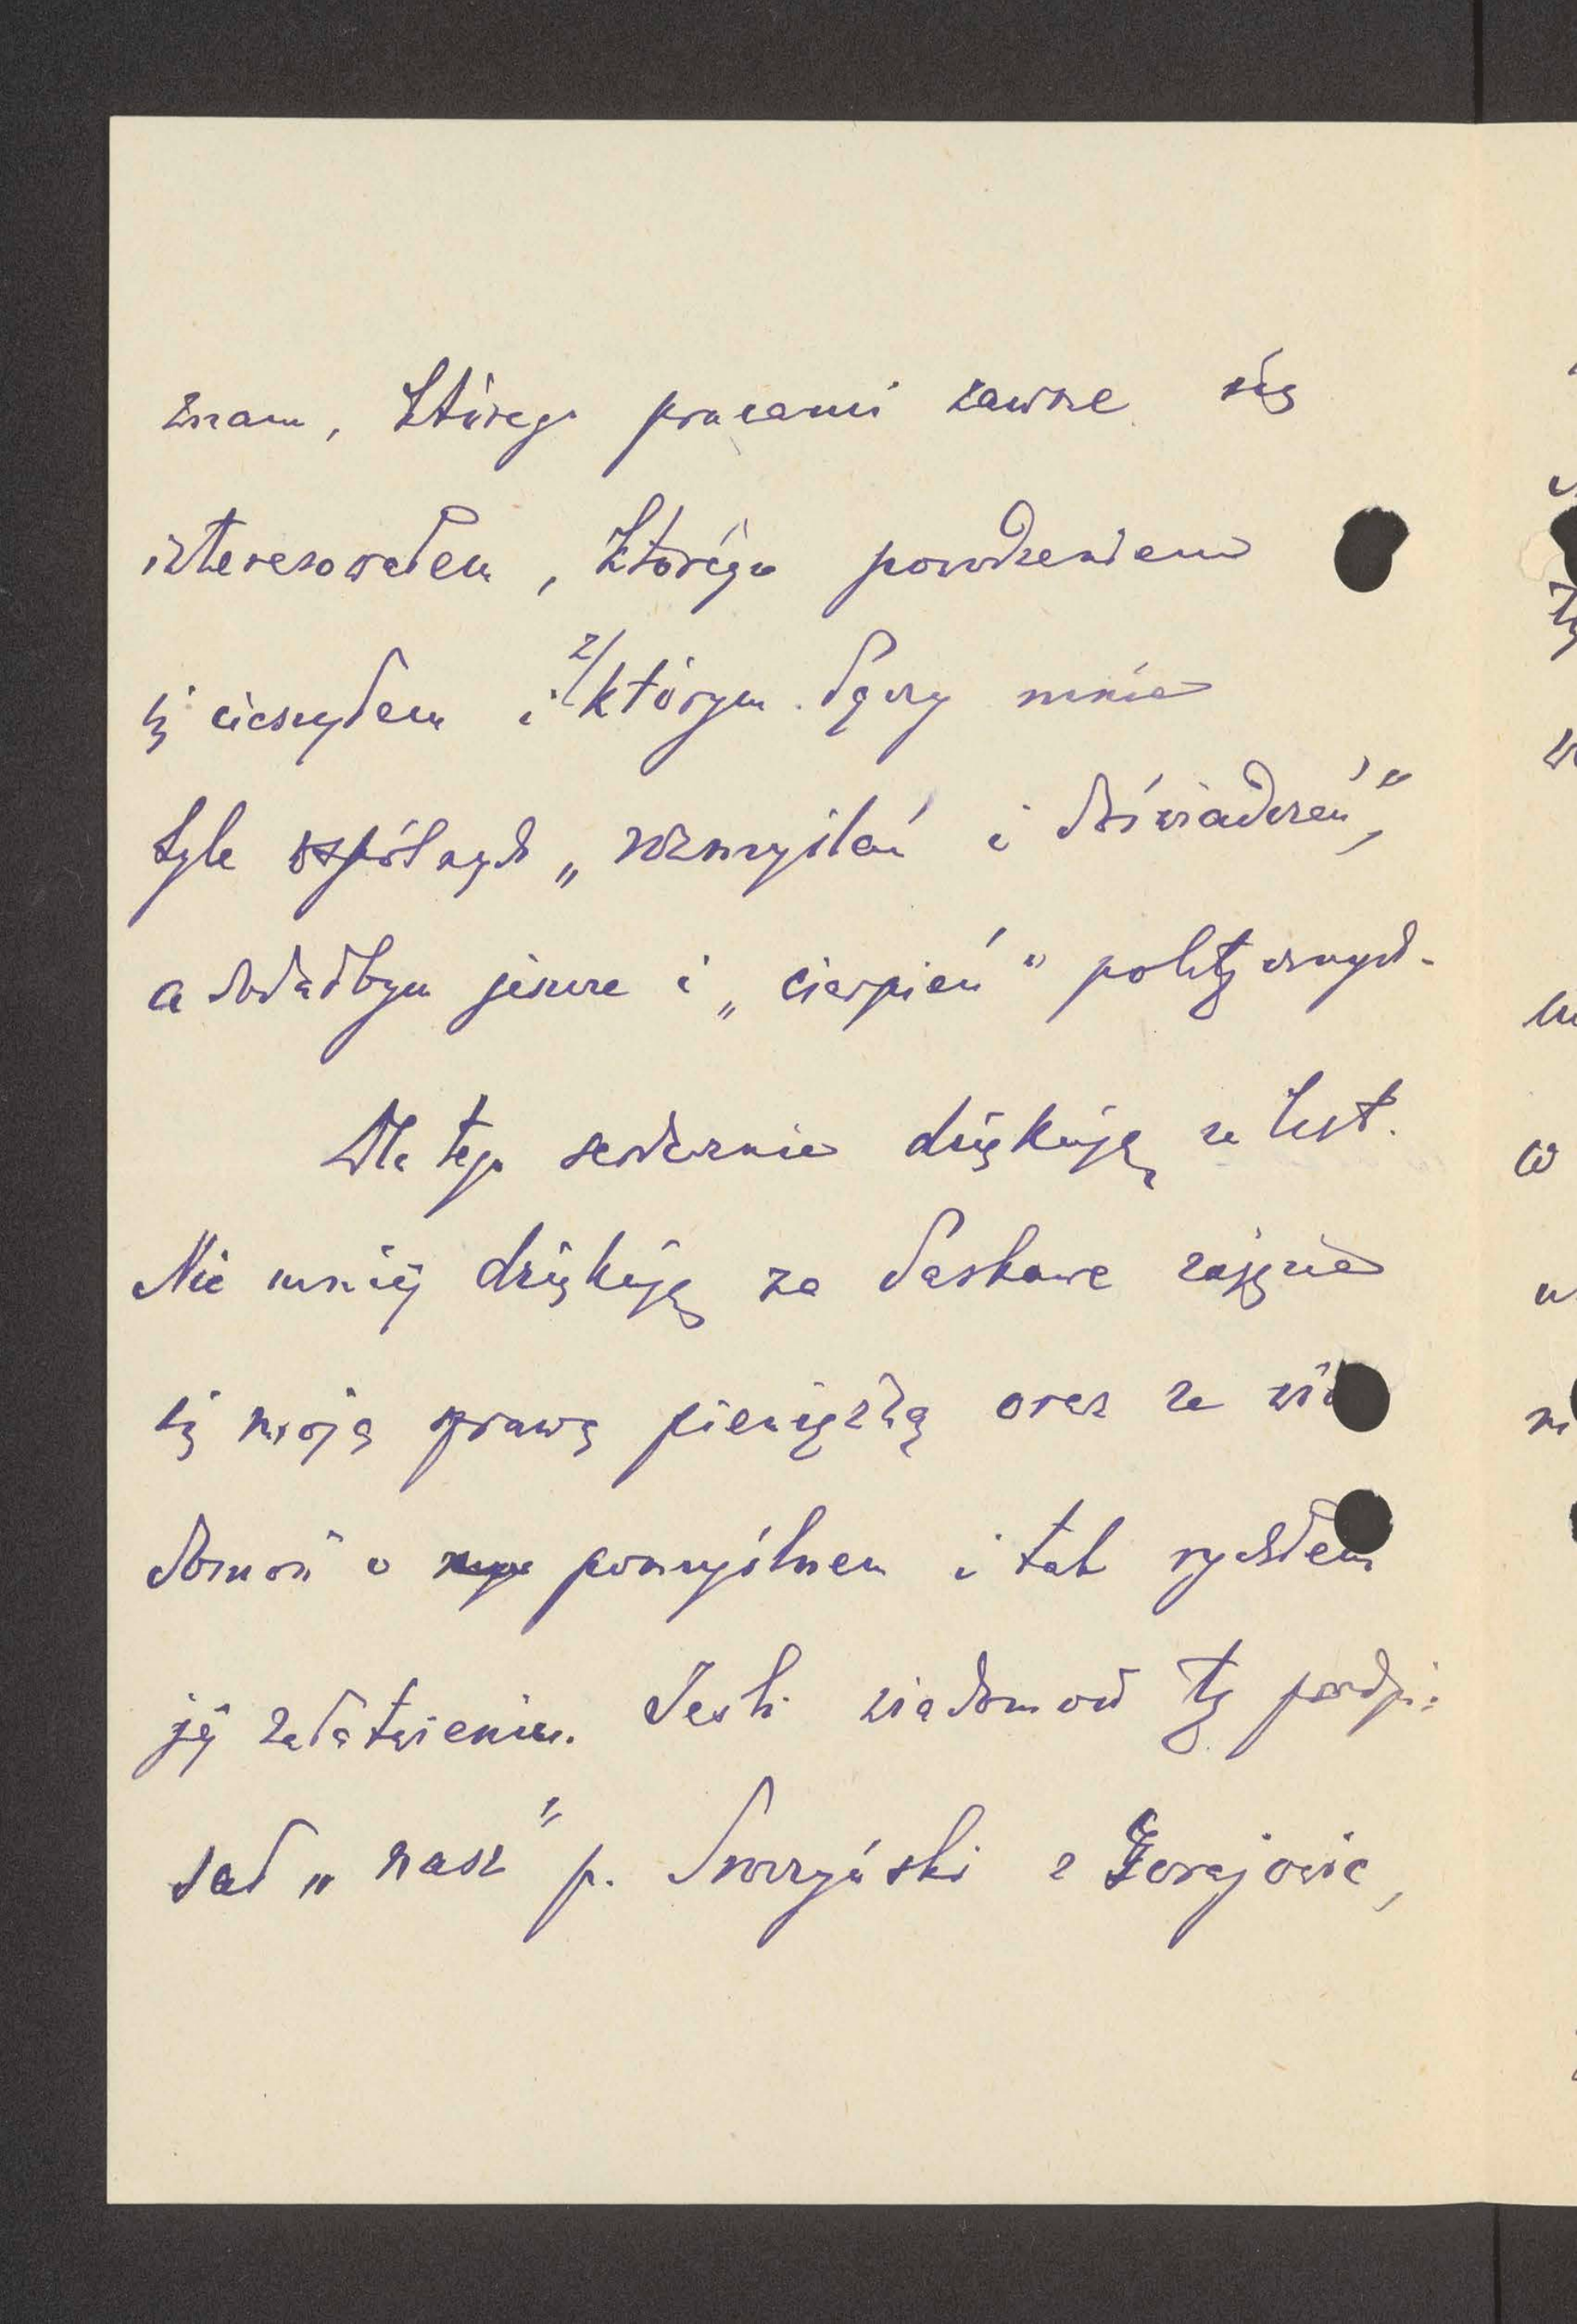 znam, którego pracami zawsze się
interesowałem, którego powodzeniem
się cieszyłem i z/ którym łączy mnie
tyle wspólnych „rozmyślań i doświadczeń",
a dodałbym jeszcze i „cierpień" politycznych.
Dla tego serdecznie dziękuję za list.
Nie mniej dziękuję za łaskawe zajęcie
się moją sprawą pieniężną oraz za wia
domość o pomyślnem i tak rychłem
jej załatwieniu. Jeśli wiadomość tę podpi:
sał „nasz" p. z Gorajowic,